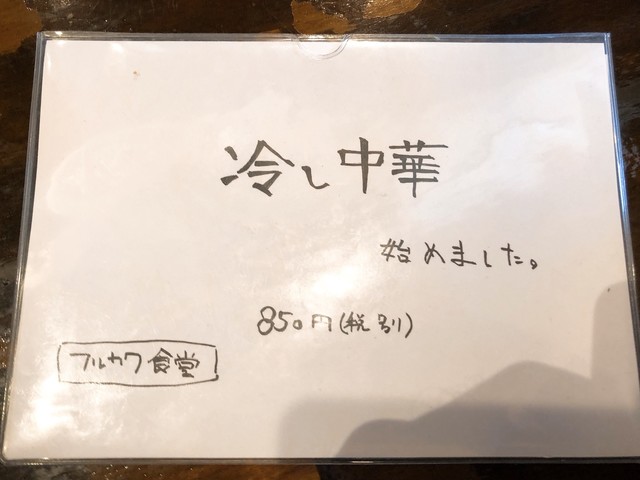 冷し中華
始めました。
850円(税別)
フルカワ食堂